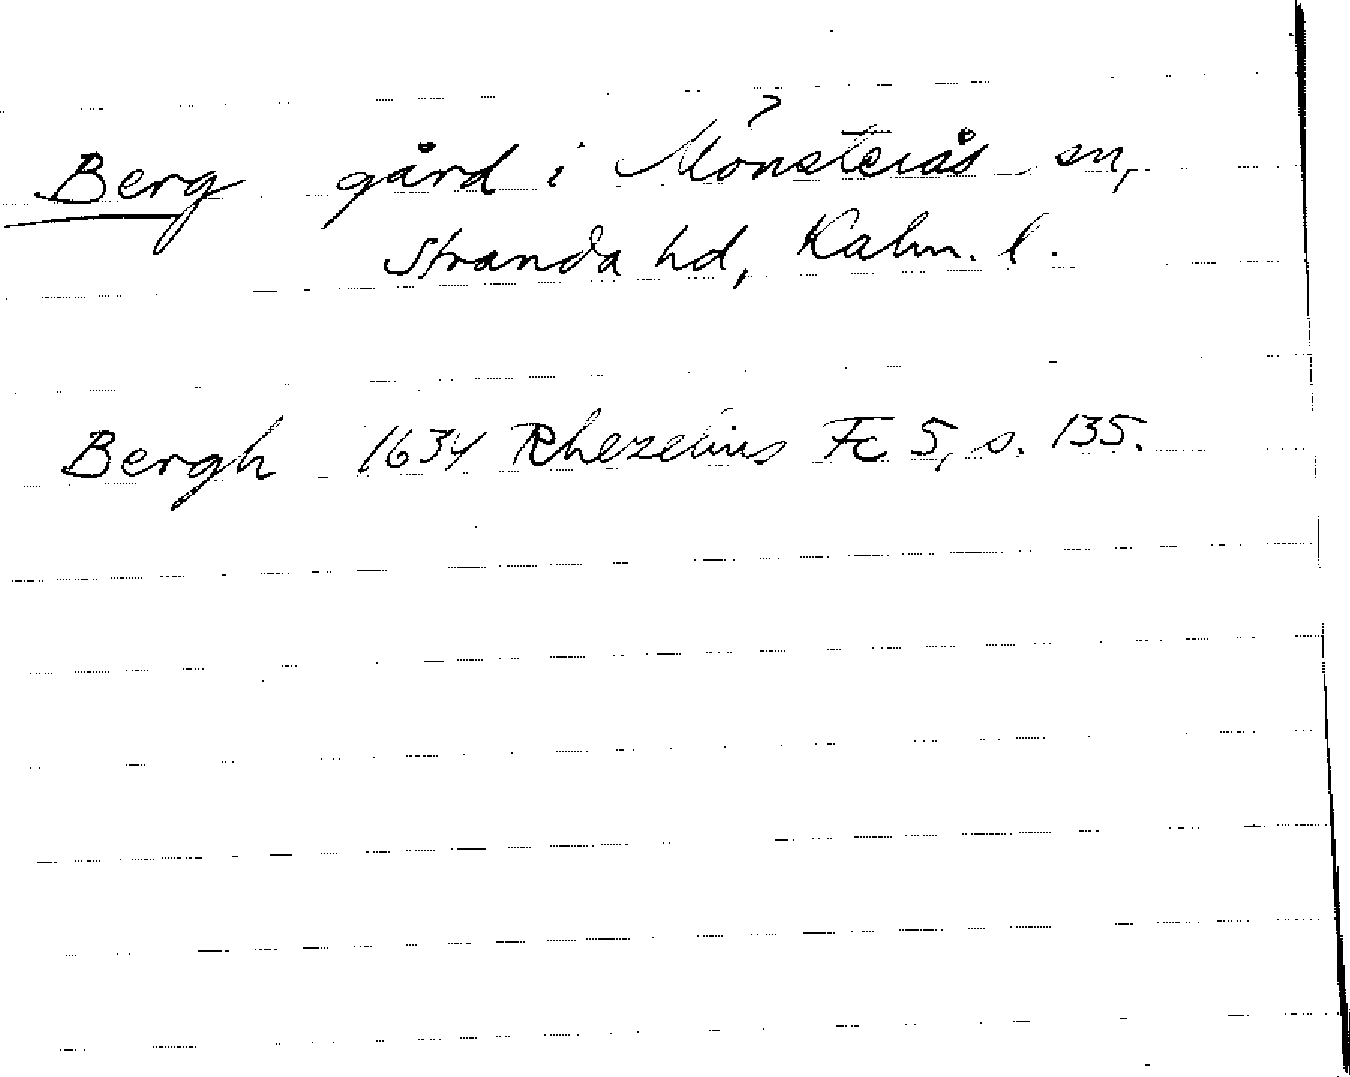 Berg gård i Mönsterås sn,
Stranda hd, Kalm. l.
Bergh 1634 Rhezelius Fc 5, s. 135.